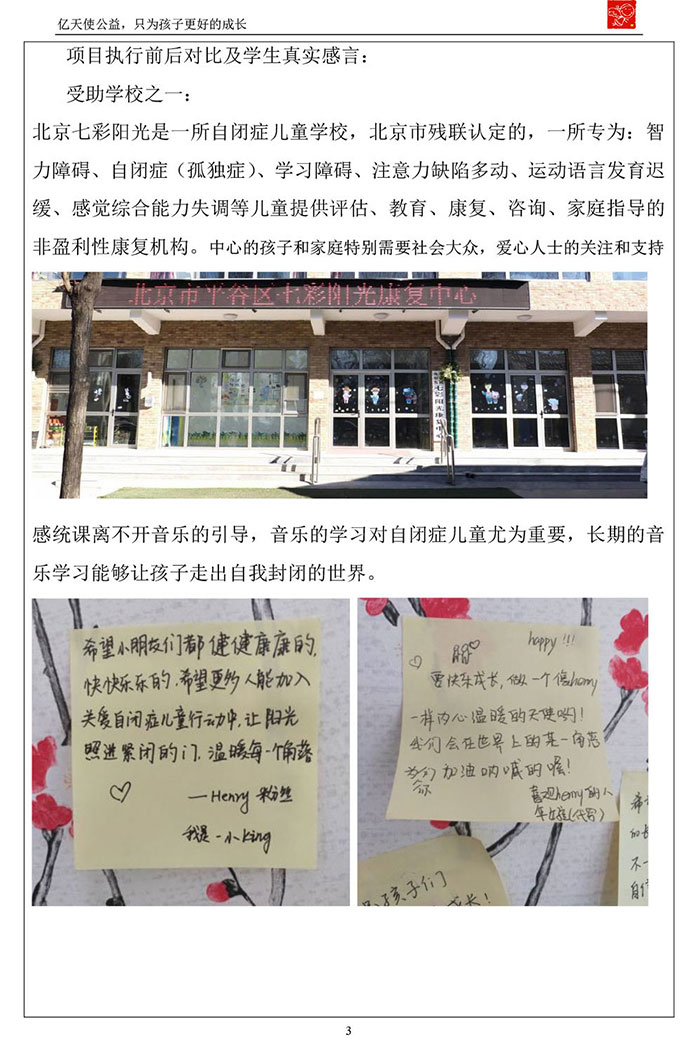 亿天使公益，只为孩子更好的成长
项目执行前后对比及学生真实感言：
受助学校之一：
北京七彩阳光是一所自闭症儿童学校，北京市残联认定的，一所专为：智
力障碍、自闭症（孤独症）、学习障碍、注意力缺陷多动、运动语言发育迟
缓、感觉综合能力失调等儿童提供评估、教育、康复、咨询、家庭指导的
非盈利性康复机构。中心的孩子和家庭特别需要社会大众，爱心人士的关注和支持
北京市平谷区七彩阳光康复中心
七彩阳光康复中心
感统课离不开音乐的引导，音乐的学习对自闭症儿童尤为重要，长期的音
乐学习能够让孩子走出自我封闭的世界。
希望小朋友们都健健康康的，
快快乐乐的，希望更多人能加入
关爱自闭症儿童行动中，让阳光
照进紧闭的门，温暖每一个角落
—Henry 粉丝
我是一小King
happy!!!
要快乐成长，做一个像henry
一样内心温暖的天使哟！
我们会在世界上的某一角落
为你们加油呐喊的喔！
喜欢henry的人
孩子们
成长！
3